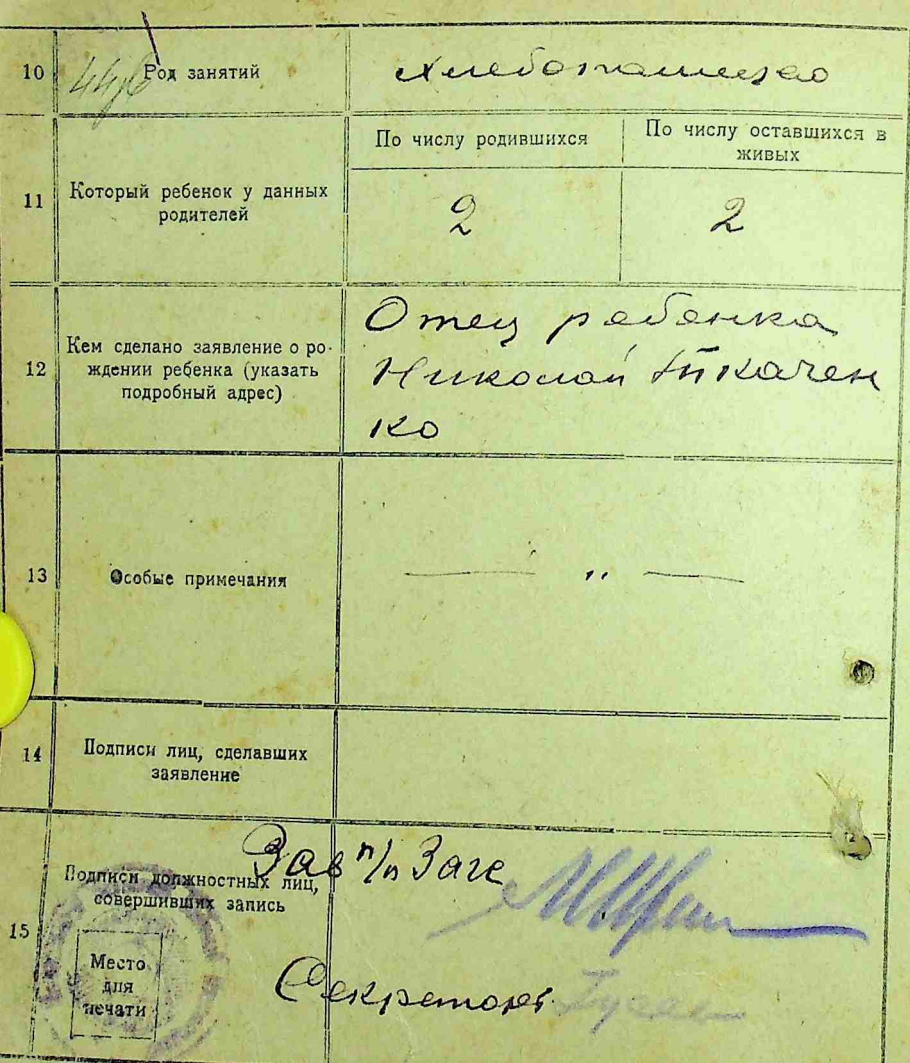 10
Род занятий
Хлебопашество
11
Который ребенок у данных
родителей
По числу родившихся
По числу оставшихся в
живых
2
2
12
Кем сделано заявление о ро-
ждении ребенка (указать
подробный адрес)
Отец ребенка
Николай Ткачен
ко
13
Особые примечания
— " —
14
Подписи лиц, сделавших
заявление
15
Подписи должностных лиц,
совершивших запись
Место
для
печати
Зав п/п Загс
Секретарь